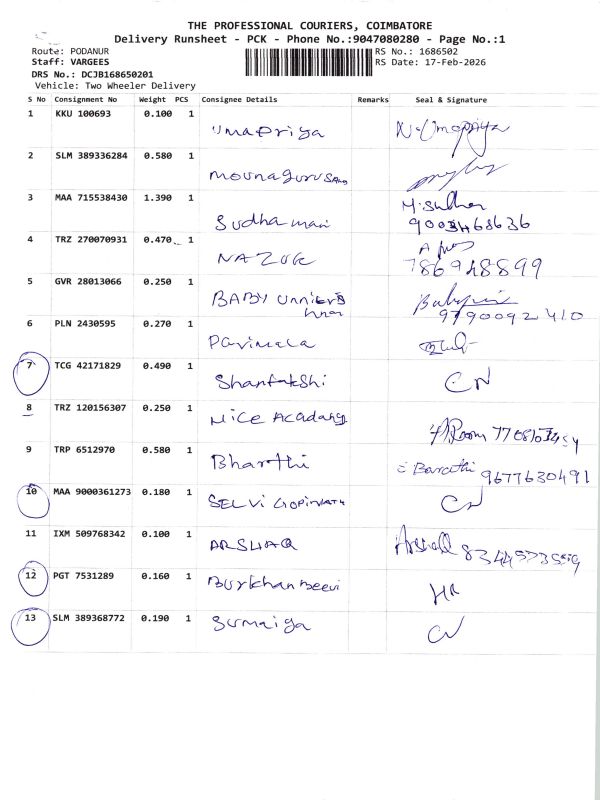 THE PROFESSIONAL COURIERS, COIMBATORE
Delivery Runsheet - PCK - Phone No.:9047080280 - Page No.:1
Route: PODANUR
RS No.: 1686502
Staff: VARGEES
RS Date: 17-Feb-2026
DRS No.: DCJB168650201
Vehicle: Two Wheeler Delivery
S No Consignment No Weight PCS Consignee Details Remarks Seal & Signature
1 KKU 100693 0.100 1
UmaPriya N. Umapriya
2 SLM 389336284 0.580 1
Mounagurusamy
3 MAA 715538430 1.390 1 M. Sudha
Sudha mani
4 TRZ 270070931 0.470 1
NAZUK 786948899
5 GVR 28013066 0.250 1
BABY
9790092410
6 PLN 2430595 0.270 1
Parimala
7 TCG 42171829 0.490 1
Shantakshi CN
8 TRZ 120156307 0.250 1
Nice Acadamy
9 TRP 6512970 0.580 1
Bharthi Barathi 9677630491
10 MAA 9000361273 0.180 1
SELVI GOPINATH CN
11 IXM 509768342 0.100 1
ARSHAQ
12 PGT 7531289 0.160 1
Burkhanbeevi
13 SLM 389368772 0.190 1
Sumaiya CN